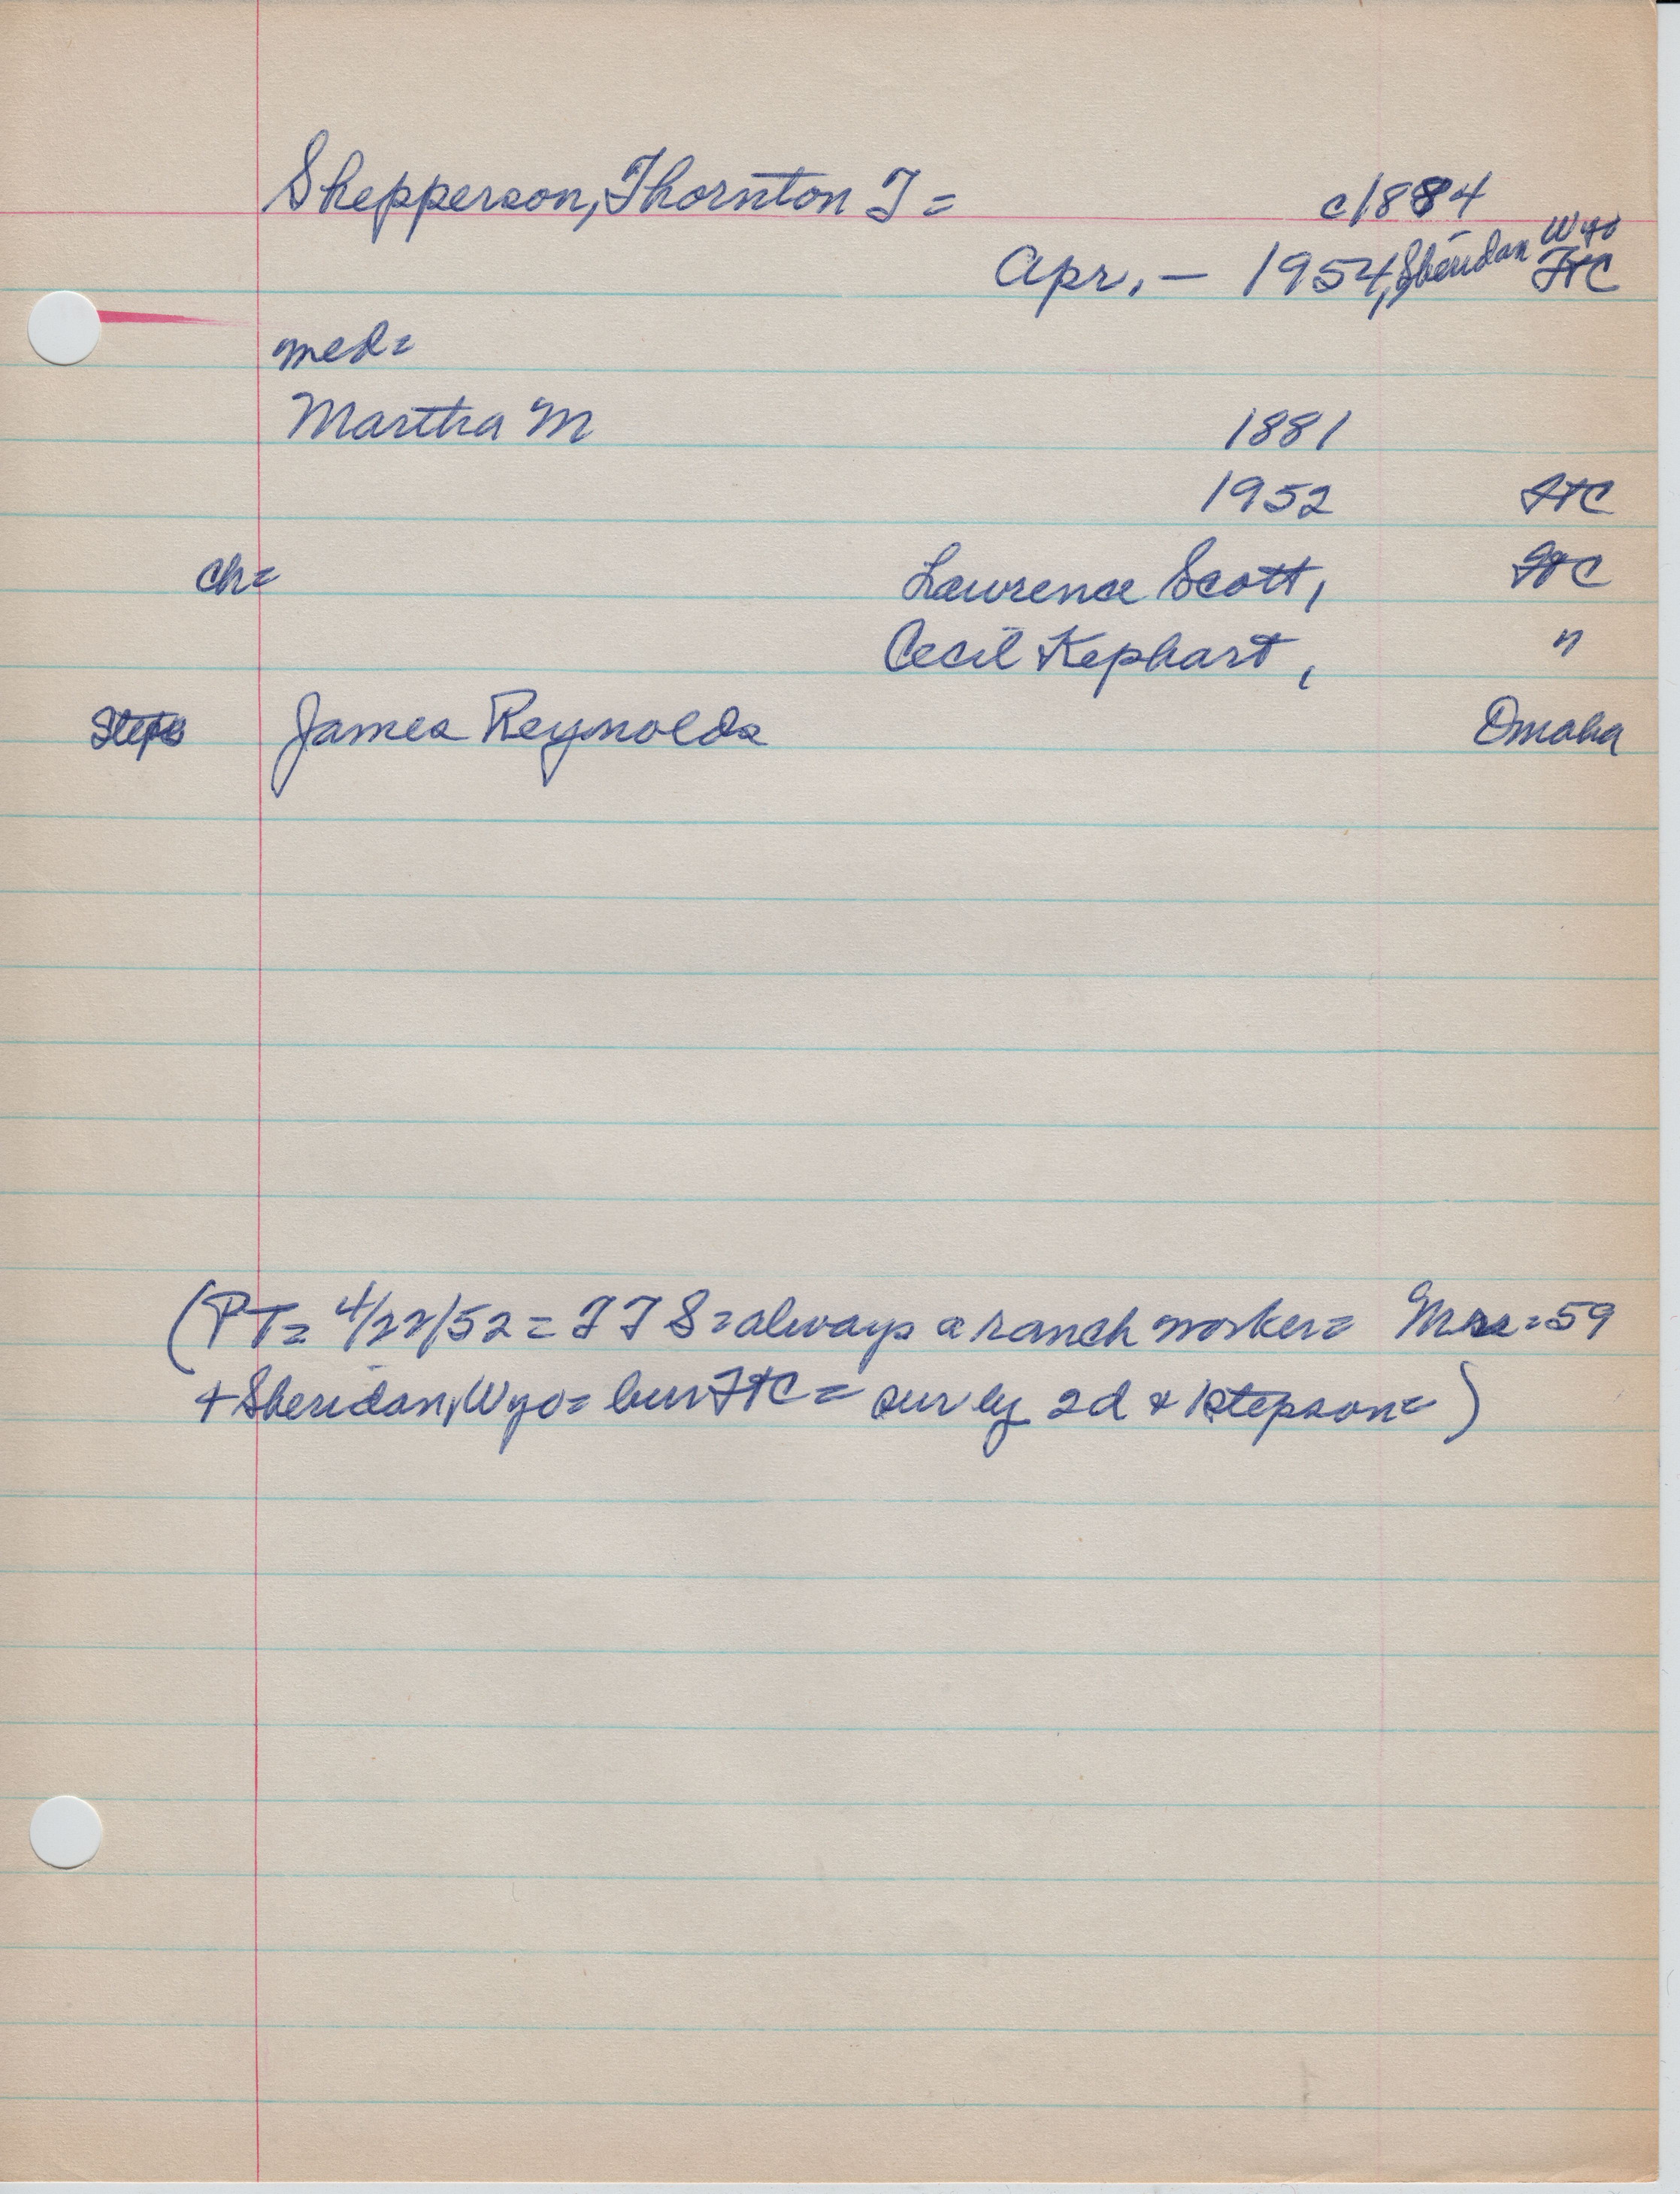 Shepperson, Thornton T = c1884
Apr. — 1954, Sheridan Wyo
FtC
med=
Martha M 1881
1952 FtC
ch= Lawrence Scott, FtC
Cecil Kephart, "
Steps James Reynolds Omaha
(PT= 4/22/52 = TTS = always a ranch worker= Mrs = 59
+ Sheridan, Wyo = bur FtC = sur by 2d & 1 stepson = )